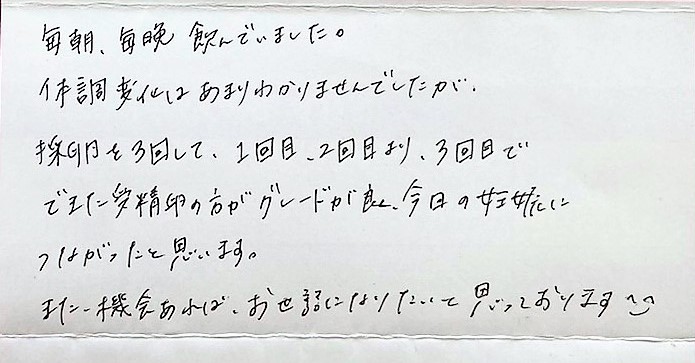 毎朝、毎晩 飲んでいました。
体調変化はあまりわかりませんでしたが、
採卵を3回して、1回目、2回目より、3回目で
できた受精卵の方がグレードが良く、今回の妊娠に
つながったと思います。
また機会あれば、お世話になりたいと思っております